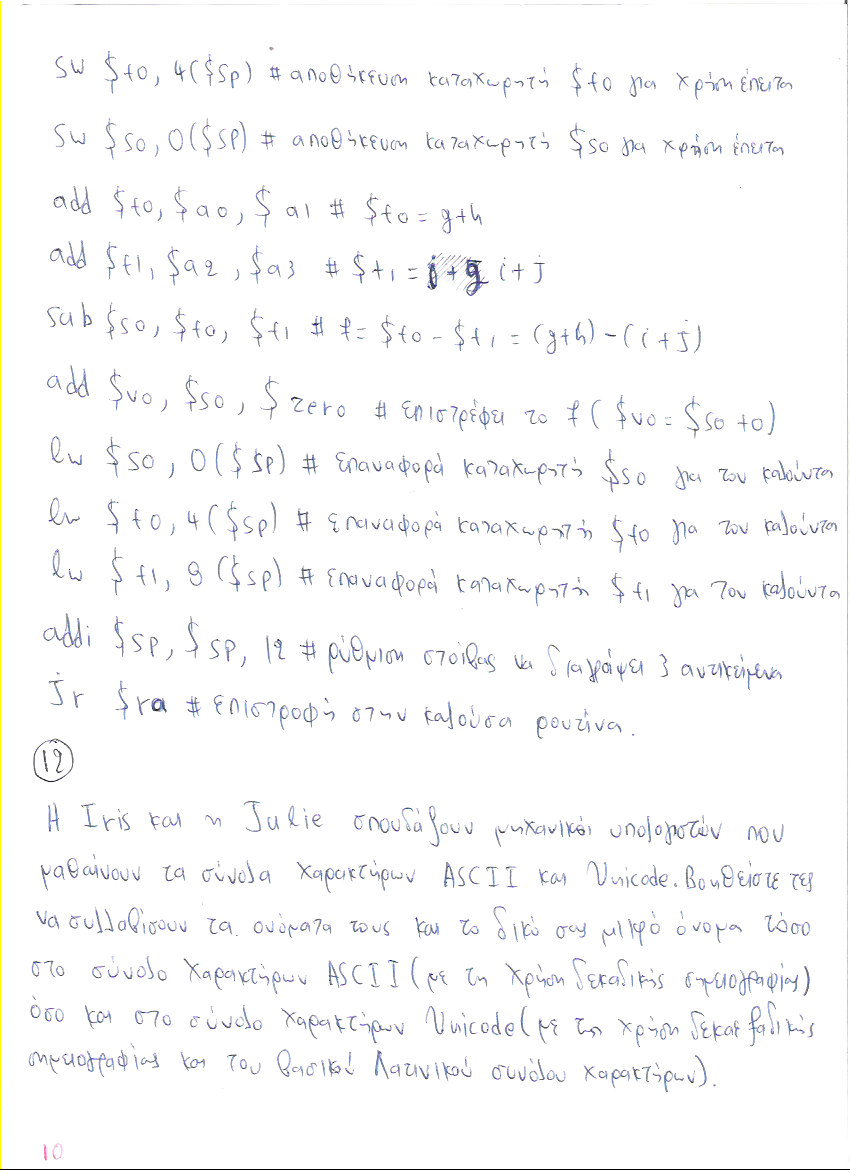 sw $t0, 4($sp) # αποθήκευση καταχωρητή $t0 για χρήση έπειτα
sw $s0, 0($sp) # αποθήκευση καταχωρητή $s0 για χρήση έπειτα
add $t0, $a0, $a1 # $t0 = g+h
add $t1, $a2, $a3 # $t1 = i+j
sub $s0, $t0, $t1 # f = $t0 - $t1 = (g+h) - (i+j)
add $v0, $s0, $zero # επιστρέφει το f ($v0 = $s0 +0)
lw $s0, 0($sp) # επαναφορά καταχωρητή $s0 για τον καλούντα
lw $t0, 4($sp) # επαναφορά καταχωρητή $t0 για τον καλούντα
lw $t1, 8($sp) # επαναφορά καταχωρητή $t1 για τον καλούντα
addi $sp, $sp, 12 # ρύθμιση στοίβας να διαγράψει 3 αντικείμενα
jr $ra # επιστροφή στην καλούσα ρουτίνα.
12
Η Iris και η Julie σπουδάζουν μηχανικοί υπολογιστών που
μαθαίνουν τα σύνολα χαρακτήρων ASCII και Unicode. Βοηθείστε τες
να συλλαβίσουν τα ονόματα τους και το δικό σας μικρό όνομα τόσο
στο σύνολο χαρακτήρων ASCII (με τη χρήση δεκαδικής σημειογραφίας)
όσο και στο σύνολο χαρακτήρων Unicode (με τη χρήση δεκαεξαδικής
σημειογραφίας και του βασικού Λατινικού συνόλου χαρακτήρων).
10